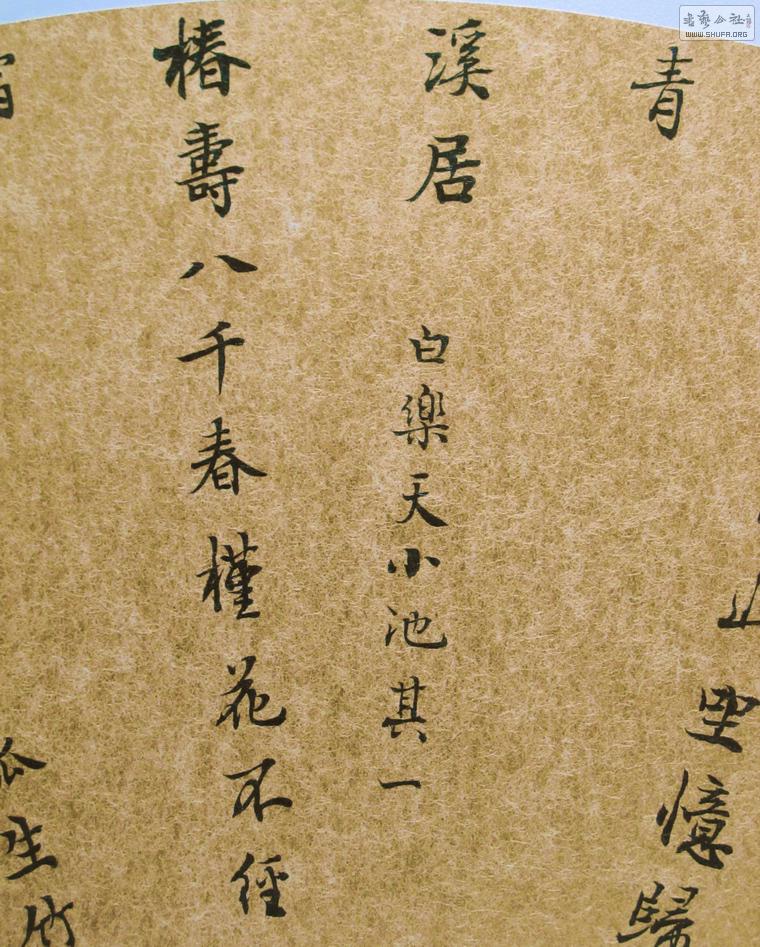 書藝公社
WWW.SHUFA.ORG
坐憶歸
青
溪居 白樂天小池其一
椿壽八千春槿花不經
生竹